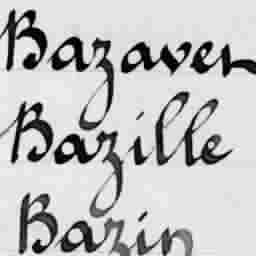 Bazaver
Bazille
Bazin